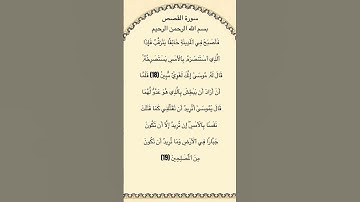 سورة القصص
بسم الله الرحمن الرحيم
فَأَصْبَحَ فِي الْمَدِينَةِ خَائِفًا يَتَرَقَّبُ فَإِذَا
الَّذِي اسْتَنْصَرَهُ بِالْأَمْسِ يَسْتَصْرِخُهُ ۚ
قَالَ لَهُ مُوسَىٰ إِنَّكَ لَغَوِيٌّ مُّبِينٌ (18) فَلَمَّا
أَنْ أَرَادَ أَن يَبْطِشَ بِالَّذِي هُوَ عَدُوٌّ لَّهُمَا
قَالَ يَا مُوسَىٰ أَتُرِيدُ أَن تَقْتُلَنِي كَمَا قَتَلْتَ
نَفْسًا بِالْأَمْسِ ۖ إِن تُرِيدُ إِلَّا أَن تَكُونَ
جَبَّارًا فِي الْأَرْضِ وَمَا تُرِيدُ أَن تَكُونَ
مِنَ الْمُصْلِحِينَ (19)